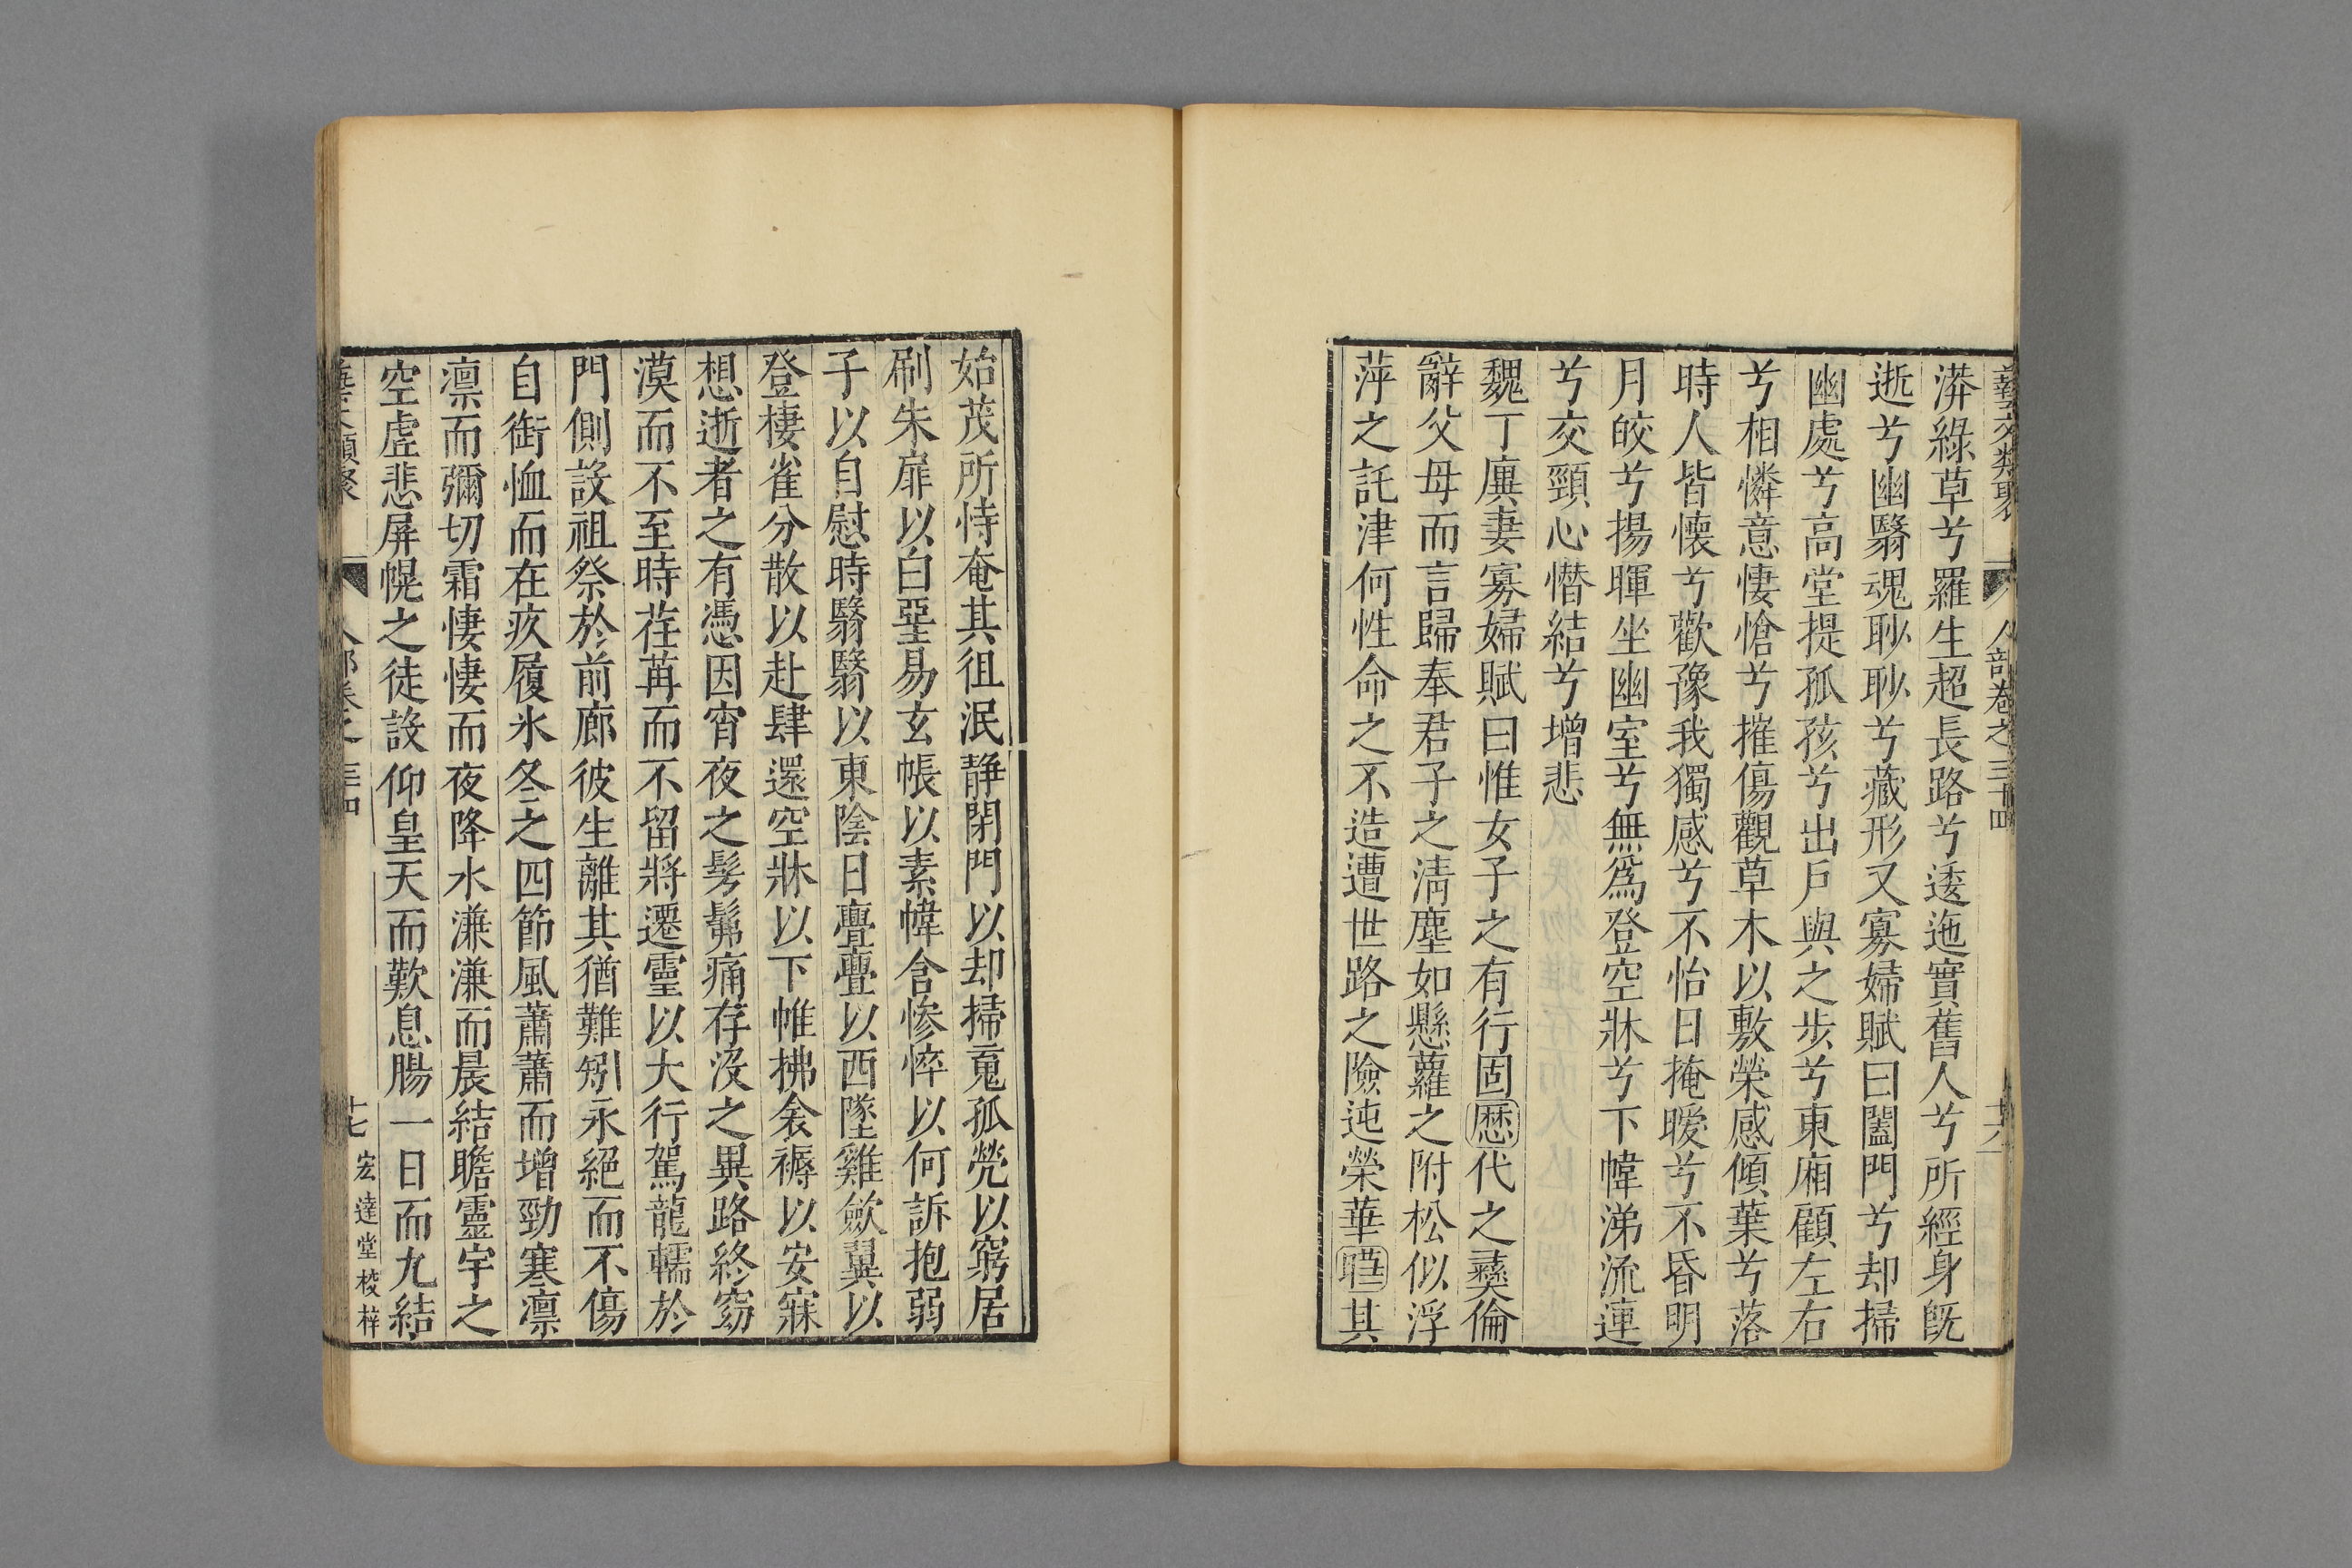 藝文類聚 人部卷之三十四 十六
漭綠草兮羅生超長路兮逶迤實舊人兮所經身旣
逝兮幽翳魂眇眇兮藏形又寡婦賦曰闔門兮却掃
幽處兮高堂提孤孩兮出戶與之步兮東廂顧左右
兮相憐意悽愴兮摧傷觀草木以敷榮感傾葉兮落
時人皆懷兮歡豫我獨感兮不怡日掩曖兮不昏明
月皎兮揚暉坐幽室兮無爲登空牀兮下幃涕流連
兮交頸心憯結兮增悲
魏丁廙妻寡婦賦曰惟女子之有行固歷代之彞倫
辭父母而言歸奉君子之淸塵如懸蘿之附松似浮
萍之託津何性命之不造遭世路之險迍榮華曄其
始茂所恃奄其徂泯靜閉門以却掃寬孤煢以窮居
刷朱扉以白堊易玄帳以素幃含慘悴以何訴抱弱
子以自慰時翳翳以東陰日亹亹以西墜雞斂翼以
登棲雀分散以赴肆還空牀以下帷拂衾褥以安寐
想逝者之有憑因宵夜之髣髴痛存沒之異路終窈
漠而不至時荏苒而不留將遷靈以大行駕龍轜於
門側設祖祭於前廊彼生離其猶難矧永絕而不傷
自銜恤而在疚履氷冬之四節風蕭蕭而增勁寒凛
凛而彌切霜悽悽而夜降水溓溓而晨結瞻靈宇之
空虛悲屏幌之徒設仰皇天而歎息腸一日而九結
藝文類聚 人部卷之三十四 十七 宏達堂校梓